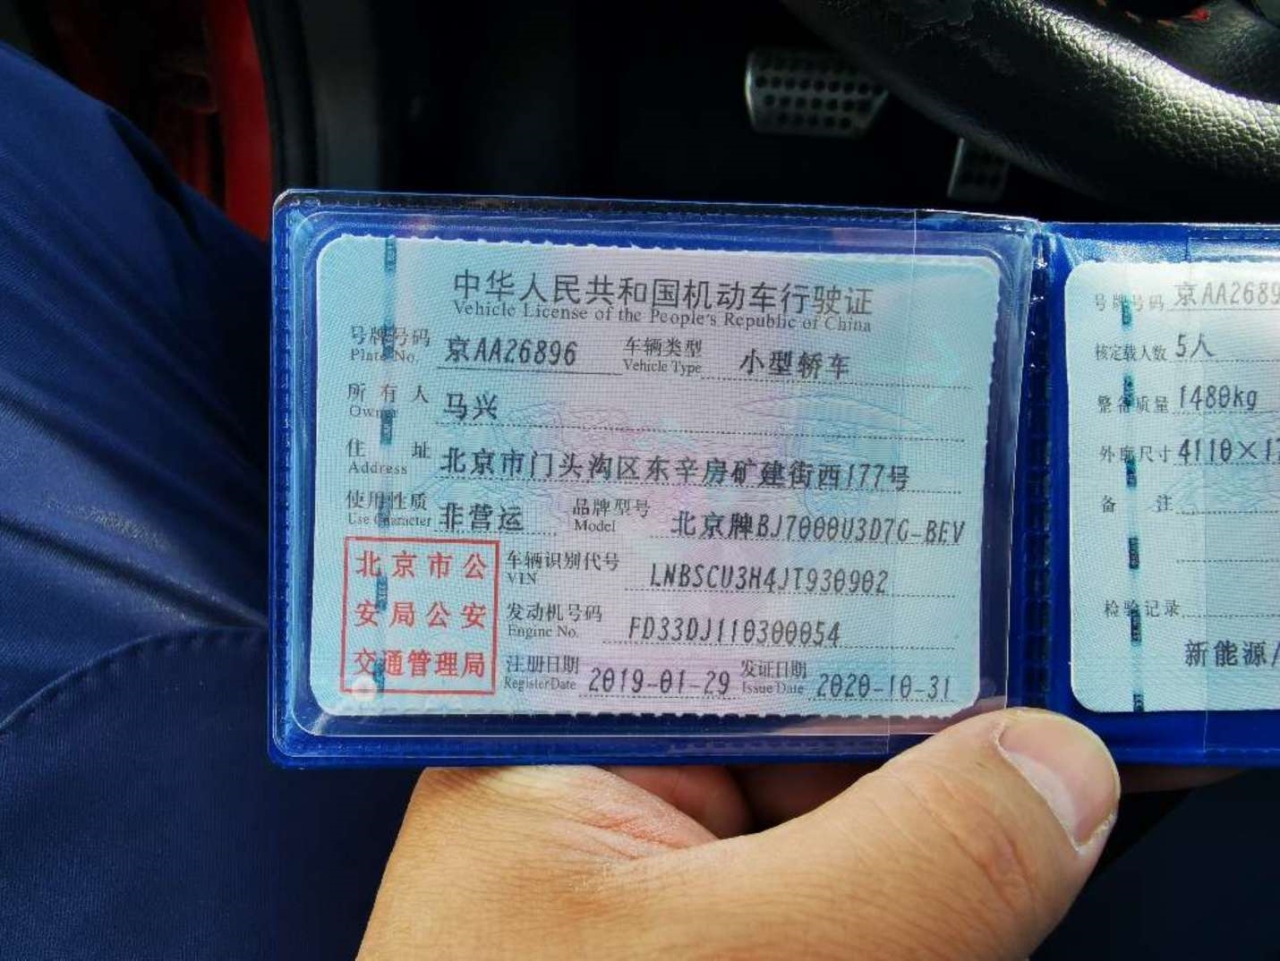 中华人民共和国机动车行驶证
Vehicle License of the People's Republic of China
号牌号码 京AA26896 车辆类型 小型轿车
Plate No. Vehicle Type
所有人 马兴
Owner
住址 北京市门头沟区东辛房矿建街西177号
Address
使用性质 非营运 品牌型号 北京牌BJ7000U3D7G-BEV
Use Character Model
北京市公
安局公安
交通管理局
车辆识别代号 LNBSCU3H4JT930902
VIN
发动机号码 FD33DJ110300054
Engine No.
注册日期 2019-01-29 发证日期 2020-10-31
Register Date Issue Date
号牌号码 京AA2689
核定载人数 5人
整备质量 1480kg
外廓尺寸 4110×1
备注
检验记录
新能源/